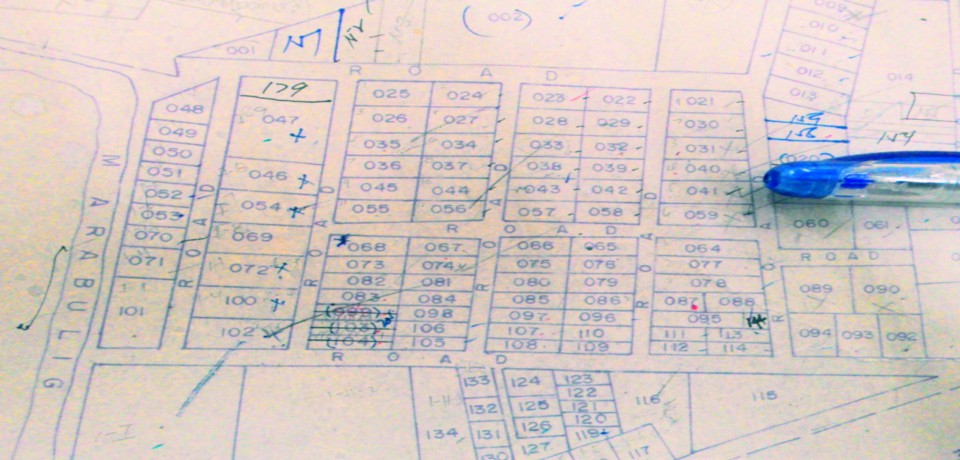 (002)
009
010
011
012
013
014
001
R O A D
179
025 024
023 022
021
048
049
050
051
052
053
070
071
101
047
046
054
069
072
100
102
026 027
035 034
036 037
045 044
055 056
028 029
033 032
038 039
043 042
057 058
030
031
040
041
059
154
060 061
ROAD
ROAD
ROAD
R O A D
068 067
073 074
082 081
083 084
(099) 098
(103) 106
(104) 105
066 065
075 076
080 079
085 086
097 096
107 110
108 109
064
077
078
087 088
095
111 113
112 114
ROAD
089 090
094 093 092
R O A D
MARABULIG
133
132
131
130
134
124 123
122
125 121
120
126 119
127
116
117
115